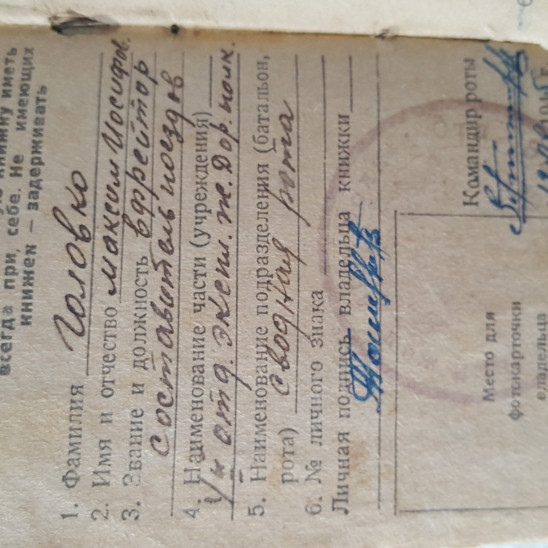 всегда при себе. Не имеющих
книжек — задерживать
1. Фамилия Головко
2. Имя и отчество Максим Иосифов.
3. Звание и должность ефрейтор
составитель поездов
4. Наименование части (учреждения)
отд. экспл. ж. дор. полк.
5. Наименование подразделения (батальон,
рота) сводная рота
6. № личного знака
Личная подпись владельца книжки
Командир роты
Место для
фотокарточки
владельца